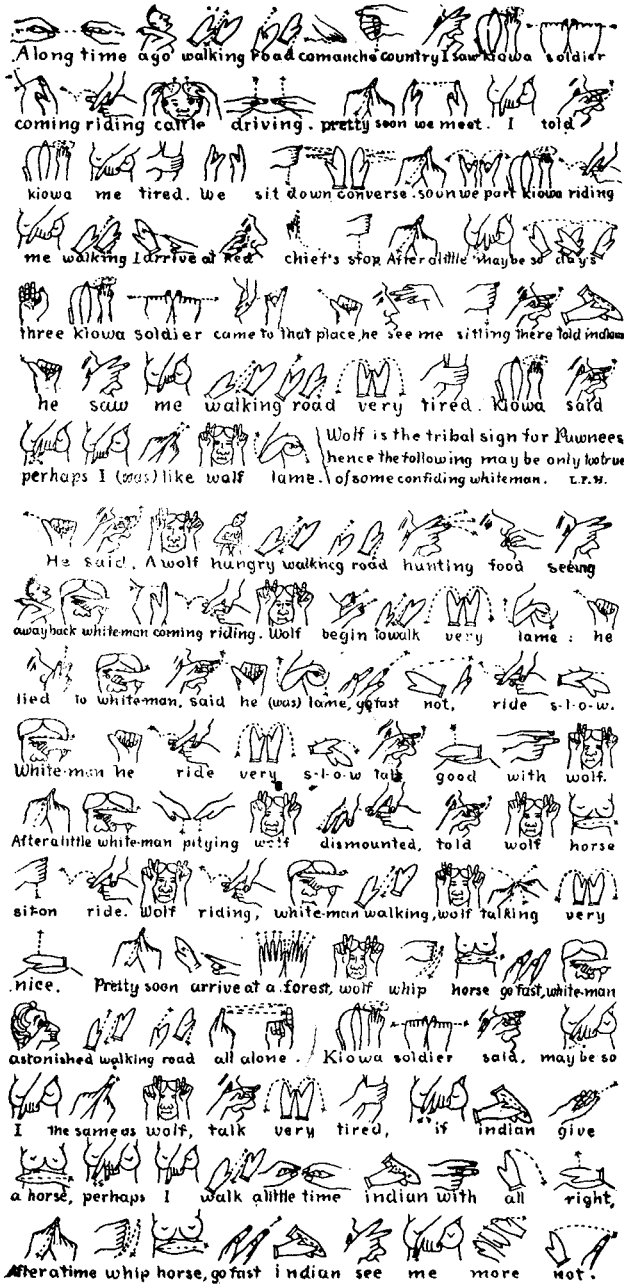 A long time ago walking road comanche country I saw Kiowa soldier
coming riding cattle driving. pretty soon we meet. I told
kiowa me tired. We sit down converse. soon we part Kiowa riding
me walking I arrive at Red chief's stop After a little may be so days
three Kiowa soldier came to that place, he see me sitting there told indian
he saw me walking road very tired. Kiowa said
perhaps I (was) like wolf lame.
Wolf is the tribal sign for Pawnees
hence the following may be only too true
of some confiding whiteman. L.F.H.
He said. A wolf hungry walking road hunting food seeing
away back white-man coming riding. Wolf begin to walk very lame: he
lied to white-man, said he (was) lame, go fast not, ride s-l-o-w.
White-man he ride very s-l-o-w talk good with wolf.
After a little white-man pitying wolf dismounted, told wolf horse
sit on ride. Wolf riding, white-man walking, wolf talking very
nice. Pretty soon arrive at a forest, wolf whip horse go fast, white-man
astonished walking road all alone. Kiowa soldier said, may be so
I the same as wolf, talk very tired, "if" indian give
a horse, perhaps I walk a little time indian with all right,
After a time whip horse, go fast indian see me more not.